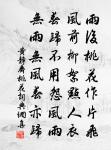 雨後桃花作片飛
風前柳絮點人衣
春歸不用怨風雨
無雨無風春亦歸
黃靜齋桃花詞